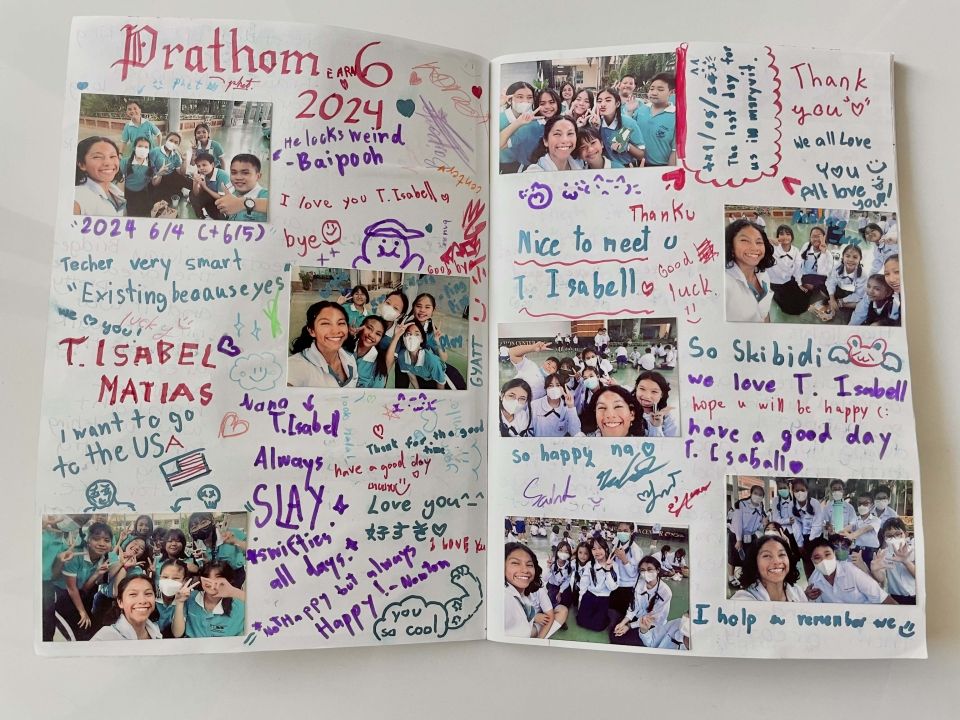 Prathom 6
EARN
2024
phet
He locks weird
-Baipooh
I love you T. Isabell
bye
"2024 6/4 (+6/5)"
Techer very smart
"Existing beaause yes
we you!
lucky
T. ISABEL
MATIAS
i want to go
to the USA
GYATT
Nana
T. Isabel
Always
SLAY.
*swifties
all days.*
Thank for the good
time
have a good day
Love you^^
好すき
I LOVE Yu
*NotHappy but always
Happy! -Nowton
you
so cool
The last day for
us in maryvit.
Thank
you
We all Love
You
Alt love
you!
Thanku
Nice to meet u
T. Isabell
Good
luck.
So Skibidi
we love T. Isabell
hope u will be happy (:
have a good day
T. Isaball
so happy na
I help u remember we